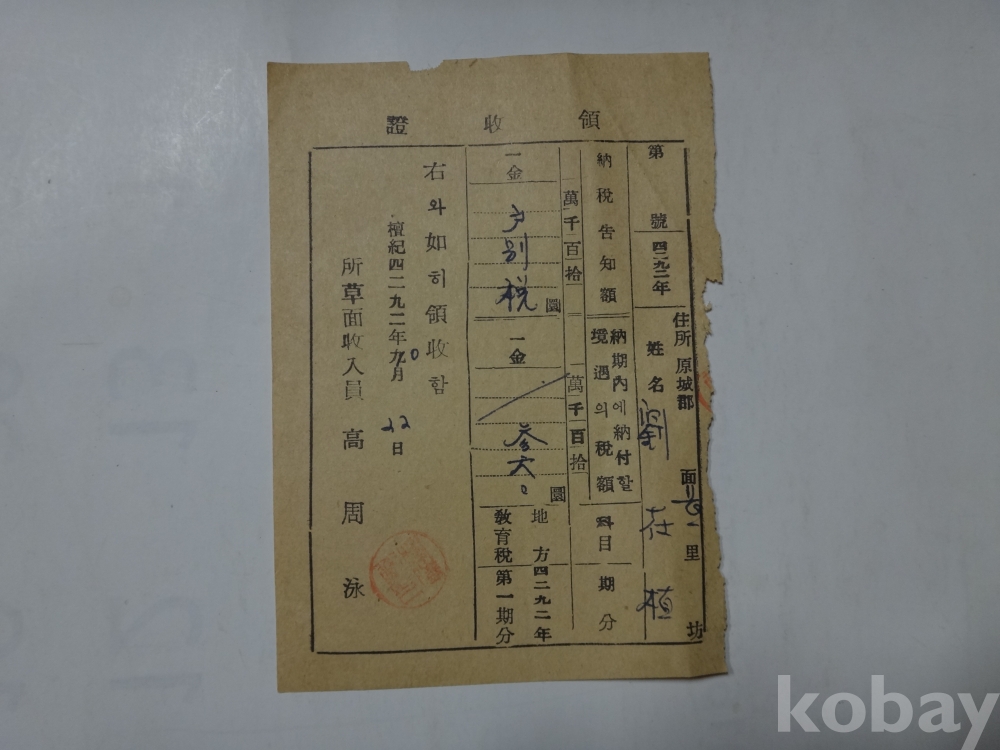 領收證
第 號 四二九二年
住所 原城郡 面 里 坊
姓名 劉在植
納稅告知額
納期內에納付할境遇의稅額
科目 期分
萬千百拾
萬千百拾
一金 戶別税 圜
一金 参六〇 圜
地方教育稅 四二九二年第一期分
右와如히領收함
檀紀四二九二年九10月22日
所草面收入員 高周泳
kobay